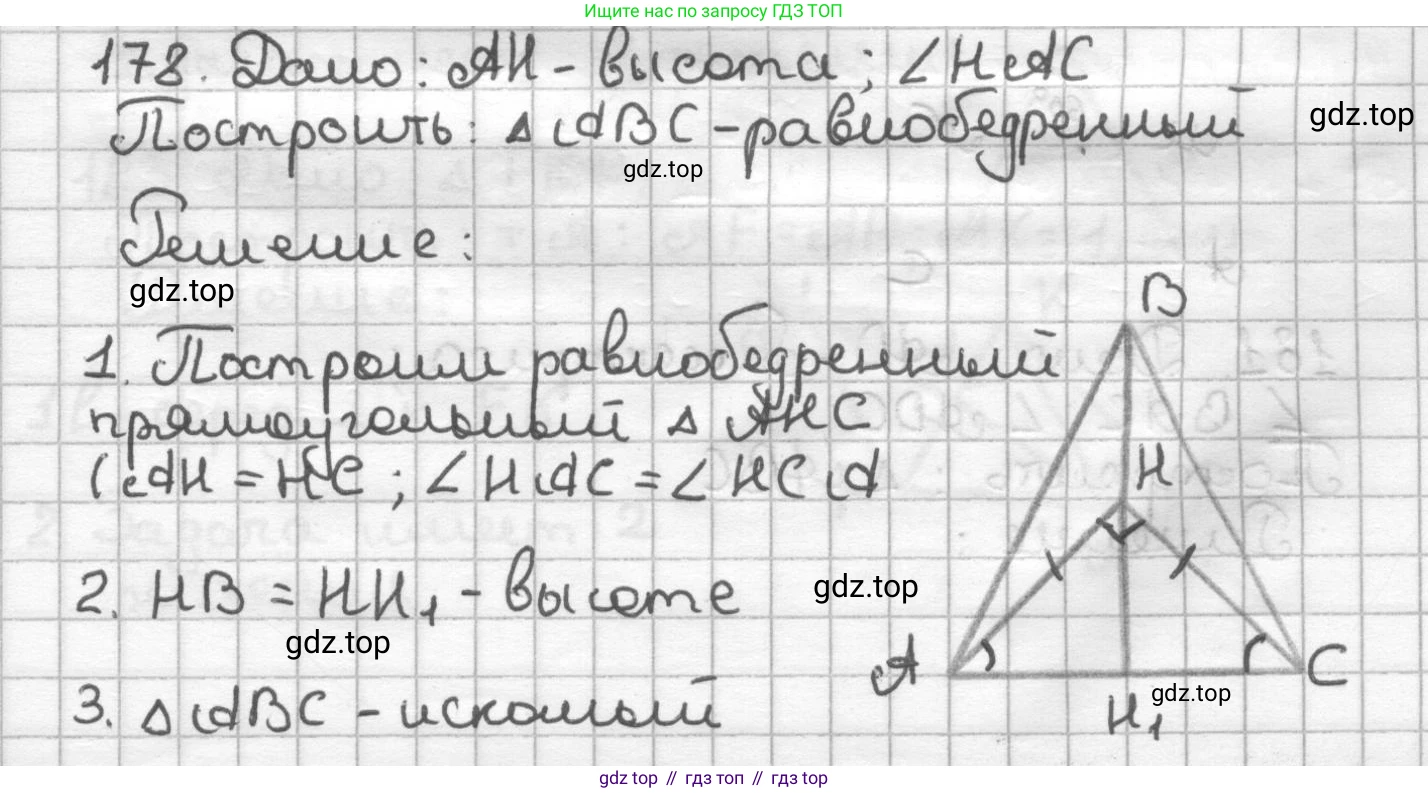 Ищите нас по запросу ГДЗ ТОП
178. Дано: AH - высота; ∠HAC
Построить: △ABC - равнобедренный
gdz.top
gdz.top
Решение:
gdz.top
1. Построим равнобедренный
прямоугольный △ AHC
(AH = HC; ∠HAC = ∠HCA
2. HB = HH₁ - высоте
gdz.top
gdz.top
3. △ABC - искомый
B
H
A
C
H₁
gdz.top
gdz top // гдз топ // гдз top